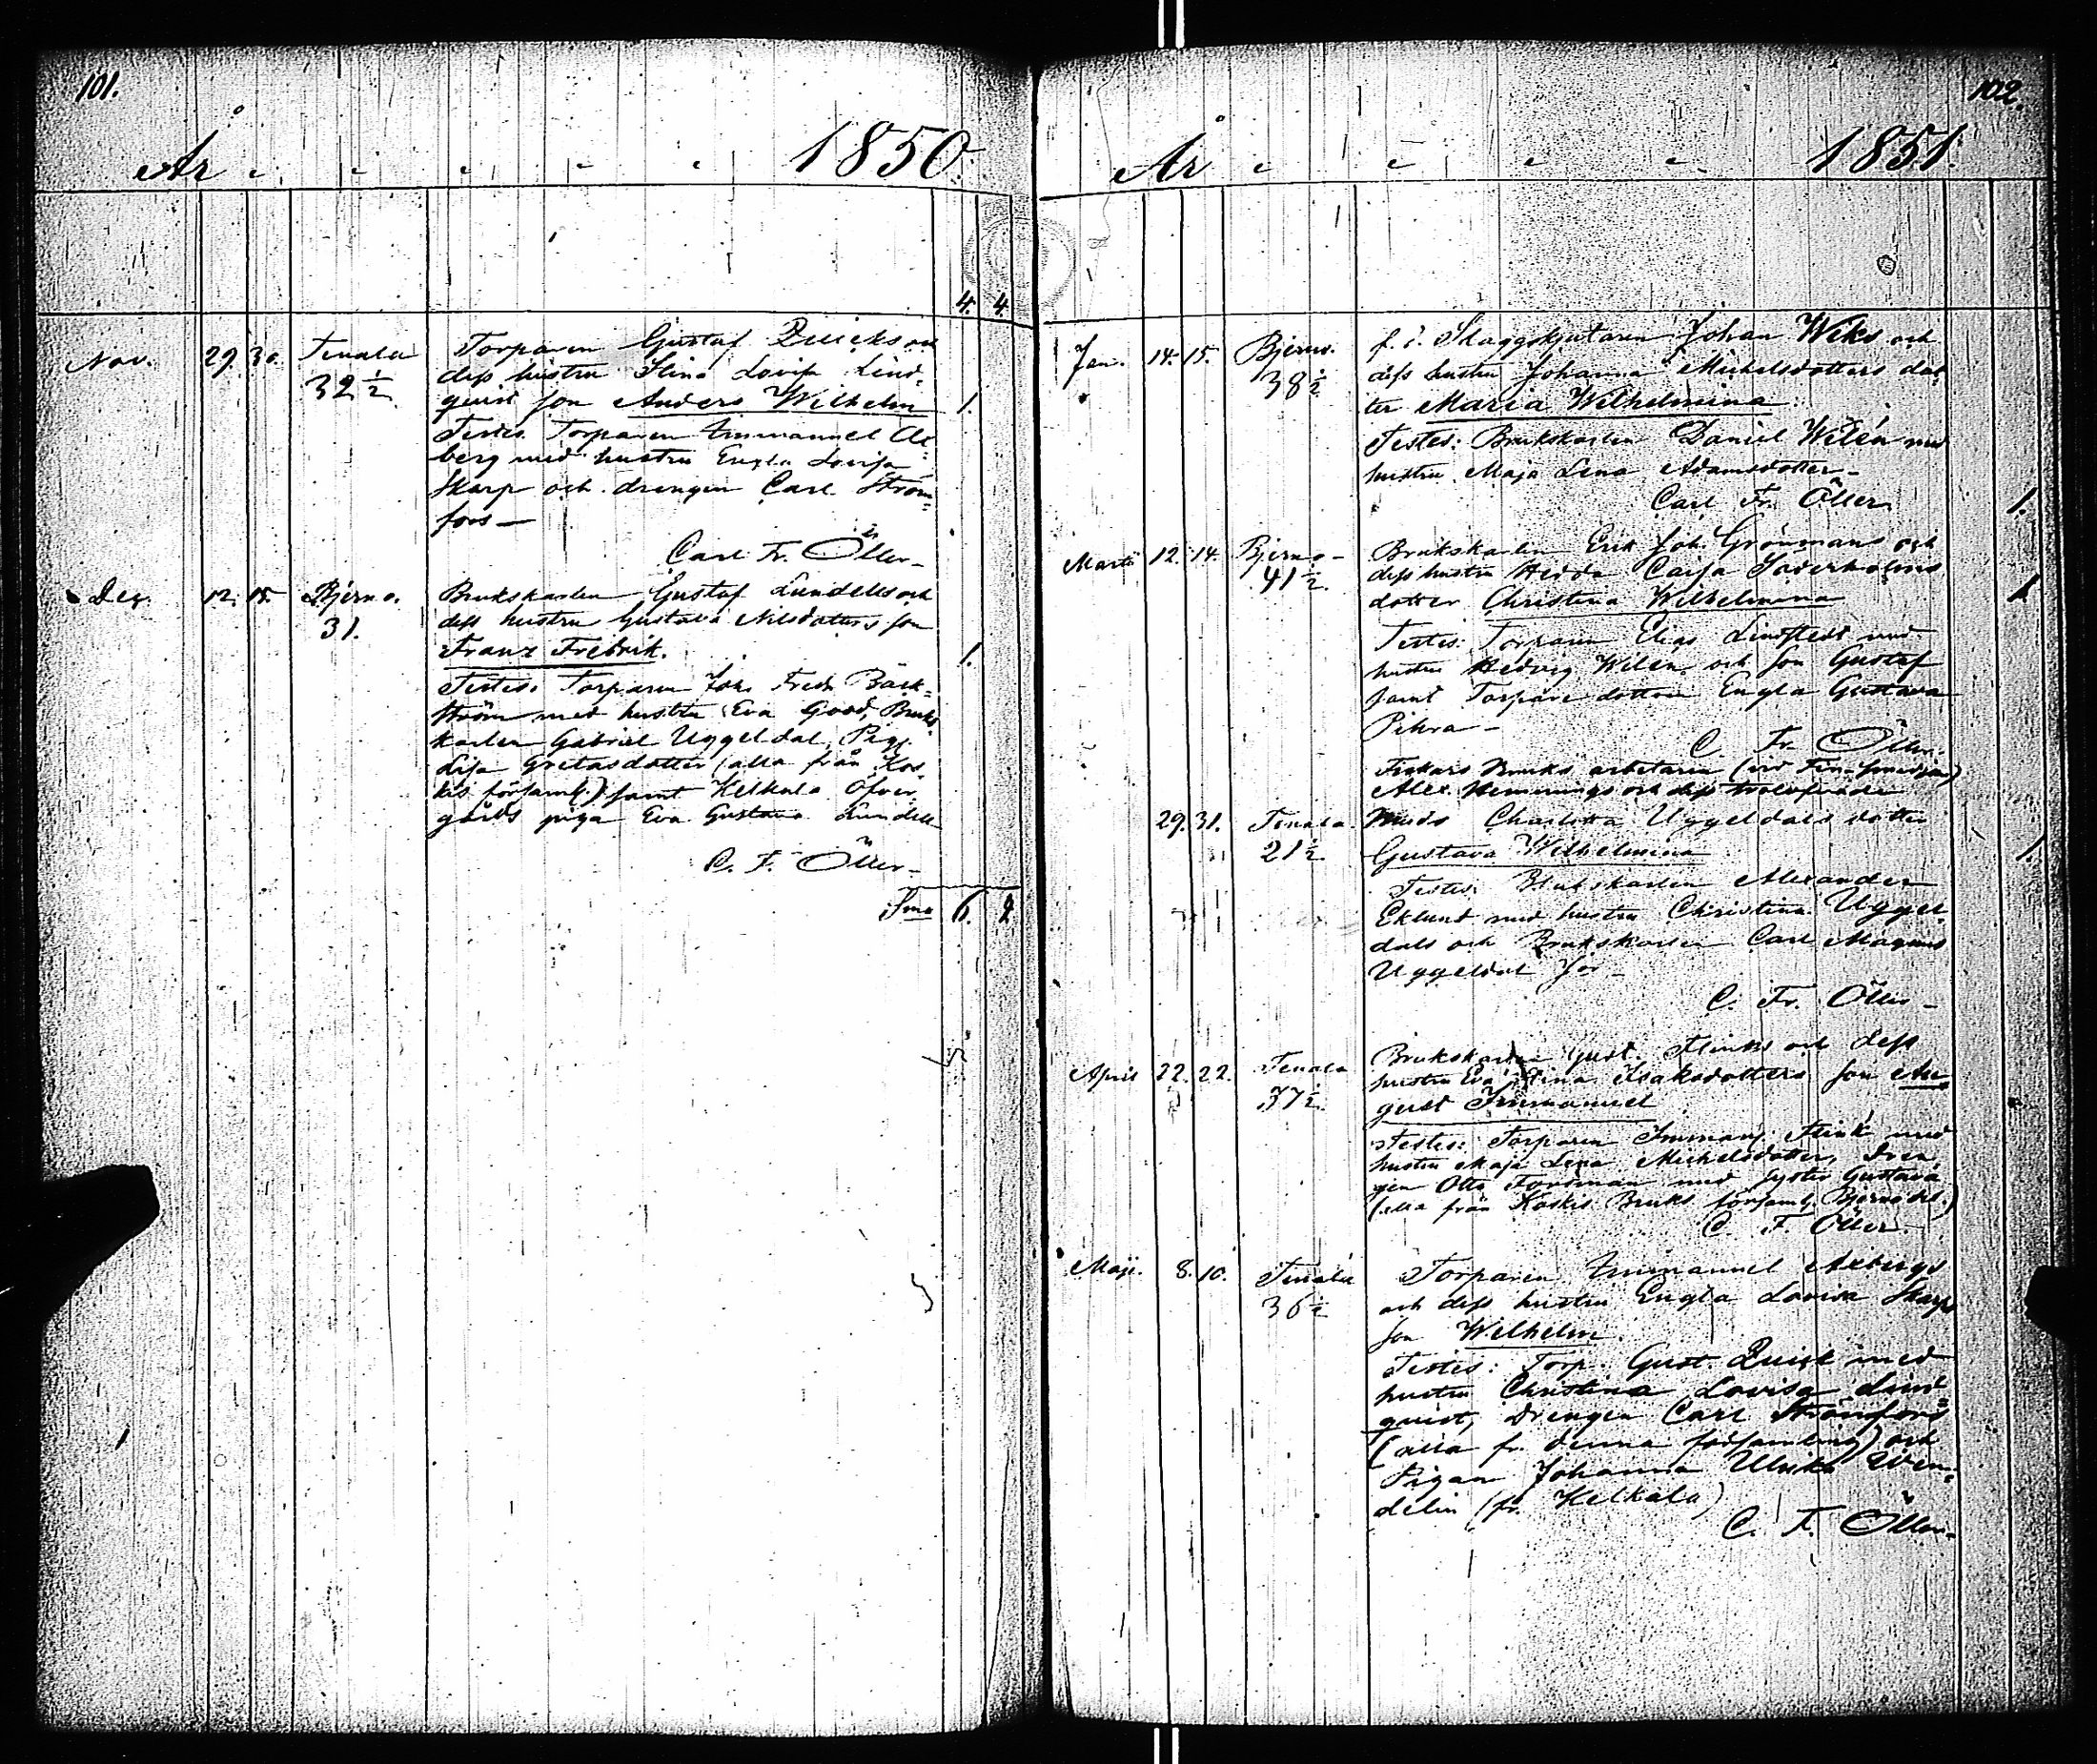 101.
År 1850.
4. 4.
Nov. 29. 30. Tenala Torparen Gustaf Quicks och
32 ½ dess hustru Stina Lovisa Lind=
quist son Anders Wilhelm 1.
Testes. Torparen Emmanuel Ax=
berg med hustru Engla Lovisa
Skarp och drengen Carl Ström=
fors—
Carl Fr. Öller—
Dec. 12. 15. Bjerno. Brukskarlen Gustaf Lundells och
31. dess hustru Gustava Nilsdotters son
Franz Fredrik. 1.
Testes: Torparen Joh. Fredr. Bäck=
ström med hustru Eva Good, Bruks
karlen Gabriel Uggeldal, Pig.
Lisa Gretasdotter (alla från Kos=
kis församl.) samt Kelkala Öfver
gårds piga Eva Gustava Lundell
C. F. Öller—
Sma 6. 2
102.
År 1851.
Jan. 14. 15. Bjerno. f. d. Johan Weks och
38 ½ dess hustru Johanna Michelsdotters dot
ter Maria Wilhelmina.
Testes: Brukskarlen Daniel Wilén med
hustru Maja Lena Adamsdotter—
Carl Fr. Öller 1.
Martii 12. 14. Bjerno— Brukskarlen Erik Joh. Grönmans och
41 ½. dess hustru Hedda Caisa Söderholms 1
dotter Christina Wilhelmina
Testes: Torparen Elias Lindstedt med
hustru Hedvig Wilén och son Gustaf
samt Torpare dottren Engla Gustava
Pihra—
C. Fr. Öller.
Fiskars Bruks arbetaren (vid Finsmedjan)
Alex. Hemmings och dess trolofvade
29. 31. Tenala. Charlotta Uggeldals dotter
21 ½ Gustava Wilhelmina 1.
Testes: Brukskarlen Alexander
Eklund med hustru Christina Uggel=
dals och Brukskarlen Carl Magnus
Uggeldal
C. Fr. Öller—
April 22. 22. Tenala Brukskarlen Gust. Flinks och dess
37 ½ hustru Eva Stina Isaksdotters son Au=
gust Immanuel
Testes: Torparen Immanl. Flink med
hustru Maja Lena Michelsdotter, Dren
gen Otto Forsman med syster Gustava
(alla från Koskis Bruks församl.
C. F. Öller.
Maji. 8. 10. Tenala Torparen Emmanuel Axbergs
36 ½ och dess hustru Engla Lovisa Skarps
son Wilhelm.
Testes: Torp. Gust. Quick med
hustru Christina Lovisa Lind=
quist, Drengen Carl Strömfors
(alla fr. denna församling) och
Pigan Johanna Ulrika Wen=
delin (fr. Kelkala)
C. F. Öller—